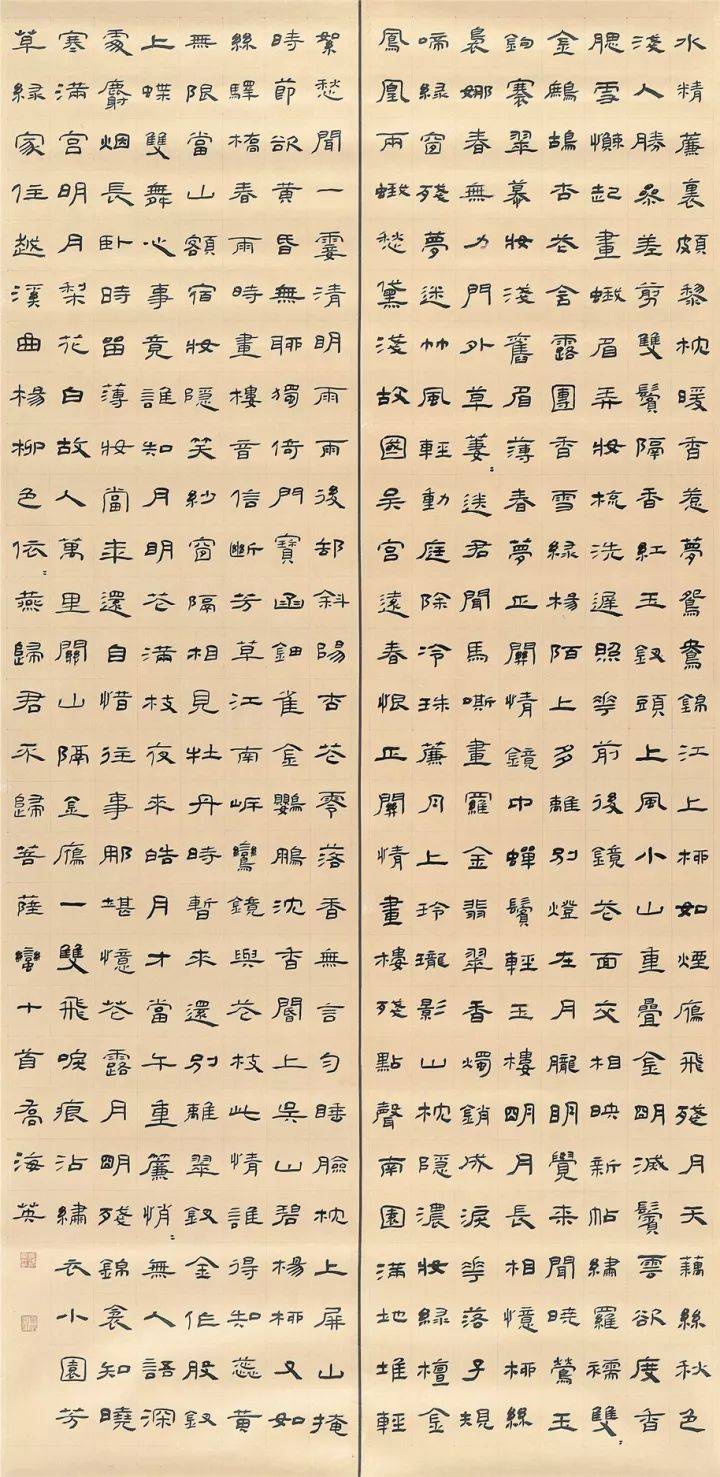 水精簾裏頗黎枕暖香惹夢鴛鴦錦江上柳如煙鴈飛殘月天藕絲秋色
淺人勝參差剪雙鬢隔香紅玉釵頭上風小山重疊金明滅鬢雲欲度香
腮雪懶起畫蛾眉弄妝梳洗遲照花前後鏡花面交相映新帖繡羅襦雙〻
金鷓鴣杏花含露團香雪綠楊陌上多離別燈在月朧明覺來聞曉鶯玉
鉤褰翠幕妝淺舊眉薄春夢正關情鏡中蟬鬢輕玉樓明月長相憶柳絲
裊娜春無力門外草萋〻送君聞馬嘶畫羅金翡翠香燭銷成淚花落子規
啼綠窗殘夢迷竹風輕動庭除冷珠簾月上玲瓏影山枕隱濃妝綠檀金
鳳凰兩蛾愁黛淺故國吳宮遠春恨正關情畫樓殘點聲南園滿地堆輕
絮愁聞一霎清明雨雨後卻斜陽杏花零落香無言勻睡臉枕上屏山掩
時節欲黃昏無聊獨倚門寶函鈿雀金沈香閣上吳山碧楊柳又如
絲驛橋春雨時畫樓音信斷芳草江南岸鸞鏡與花枝此情誰得知蕊黃
無限當山額宿妝隱笑紗窗隔相見牡丹時暫來還別離翠釵金作股釵
上蝶雙舞心事竟誰知月明花滿枝夜來皓月才當午重簾悄〻無人語深
處麝烟長臥時留薄妝當年還自惜往事那堪憶花露月明殘錦衾知曉
寒滿宮明月梨花白故人萬里關山隔金鴈一雙飛淚痕沾繡衣小園芳
草綠家住越溪曲楊柳色依〻燕歸君不歸菩薩蠻十首喬海英